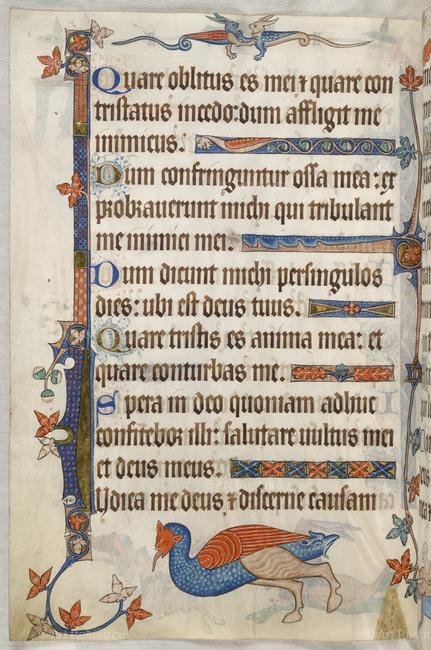 Quare oblitus es mei ⁊ quare con
tristatus incedo: dum affligit me
inimicus.
Dum confringuntur ossa mea: ex
probrauerunt michi qui tribulant
me inimici mei.
Dum dicunt michi persingulos
dies: ubi est deus tuus.
Quare tristis es anima mea: et
quare conturbas me.
Spera in deo quoniam adhuc
confitebor illi: salutare uultus mei
et deus meus.
Iudica me deus ⁊ discerne causam